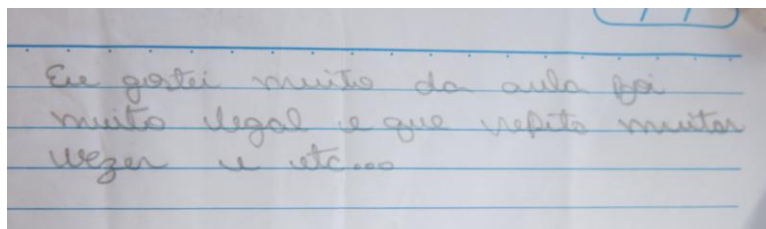 Eu gostei muito da aula foi
muito legal e que repita muitas
vezes e etc...